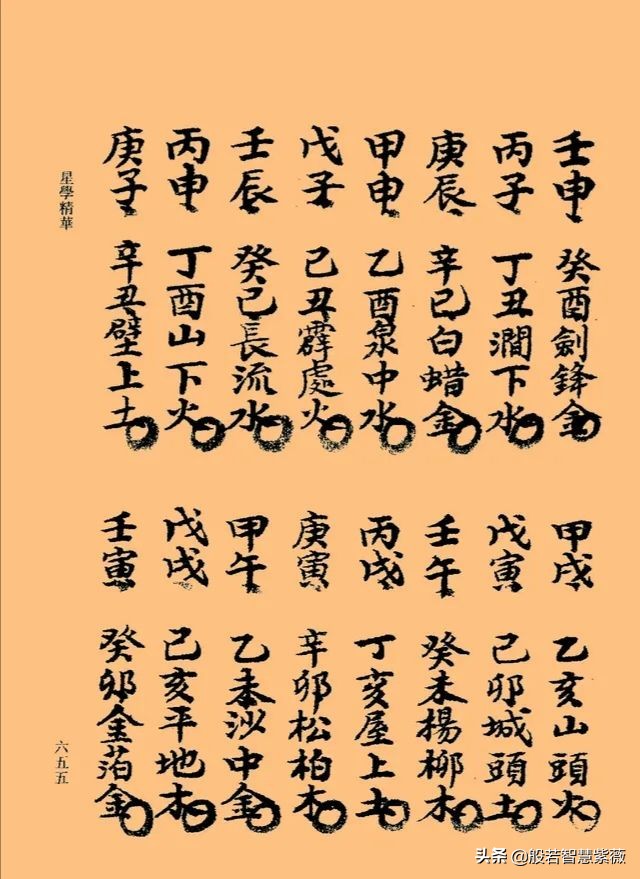 壬申 癸酉劍鋒金 甲戌 乙亥山頭火
丙子 丁丑澗下水 戊寅 己卯城頭土
庚辰 辛巳白蜡金 壬午 癸未楊柳木
甲申 乙酉泉中水 丙戌 丁亥屋上土
戊子 己丑霹處火 庚寅 辛卯松柏木
壬辰 癸巳長流水 甲午 乙未沙中金
丙申 丁酉山下火 戊戌 己亥平地木
庚子 辛丑壁上土 壬寅 癸卯金萡金
星學精華
六五五
头条 @般若智慧紫薇